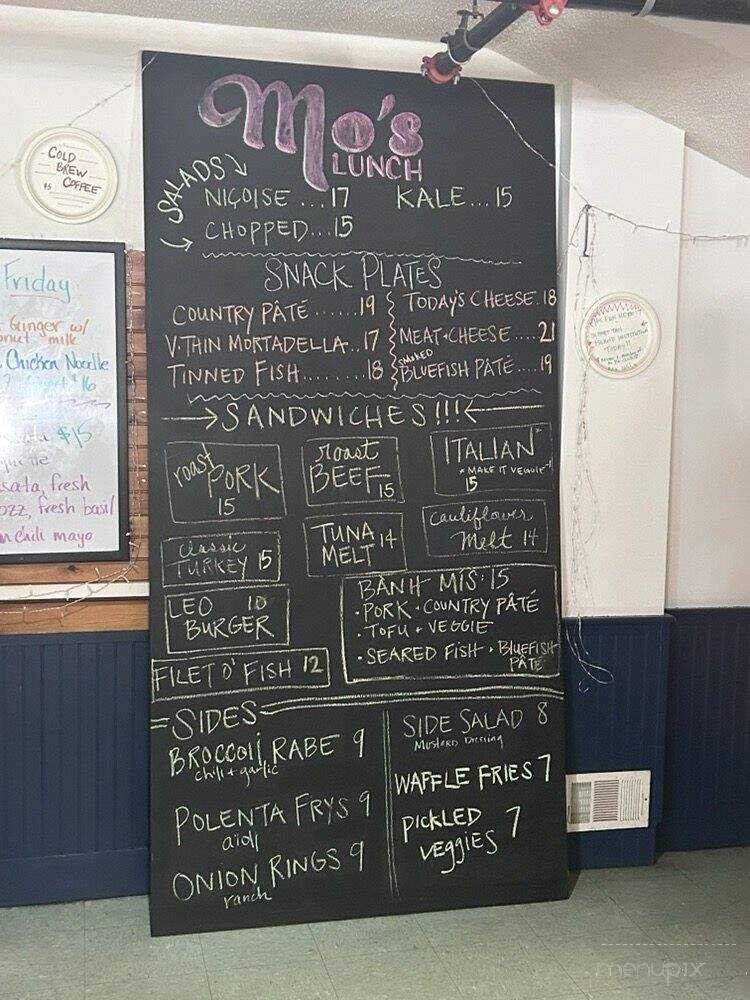 Mo's
LUNCH
SALADS
NIÇOISE ... 17
KALE ... 15
CHOPPED ... 15
SNACK PLATES
COUNTRY PÂTÉ ...... 19
V·THIN MORTADELLA. 17
TINNED FISH ....... 18
TODAY'S CHEESE. 18
MEAT + CHEESE .... 21
SMOKED
BLUEFISH PÂTÉ .... 19
SANDWICHES!!!
roast
PORK
15
roast
BEEF 15
ITALIAN*
*MAKE IT VEGGIE
15
classic
TURKEY 15
TUNA
MELT 14
cauliflower
melt 14
LEO 10
BURGER
BÀNH MÌS: 15
· PORK + COUNTRY PÂTÉ
· TOFU + VEGGIE
· SEARED FISH + BLUEFISH
PÂTÉ
FILET O' FISH 12
SIDES
BROCCOLI RABE 9
chili + garlic
POLENTA FRYS 9
aioli
ONION RINGS 9
ranch
SIDE SALAD 8
MUSTARD DRESSING
WAFFLE FRIES 7
PICKLED
VEGGIES 7
COLD
BREW
COFFEE
$5
Friday
Ginger w/
milk
Chicken Noodle
$15
fresh
fresh basil
chili mayo
menupix